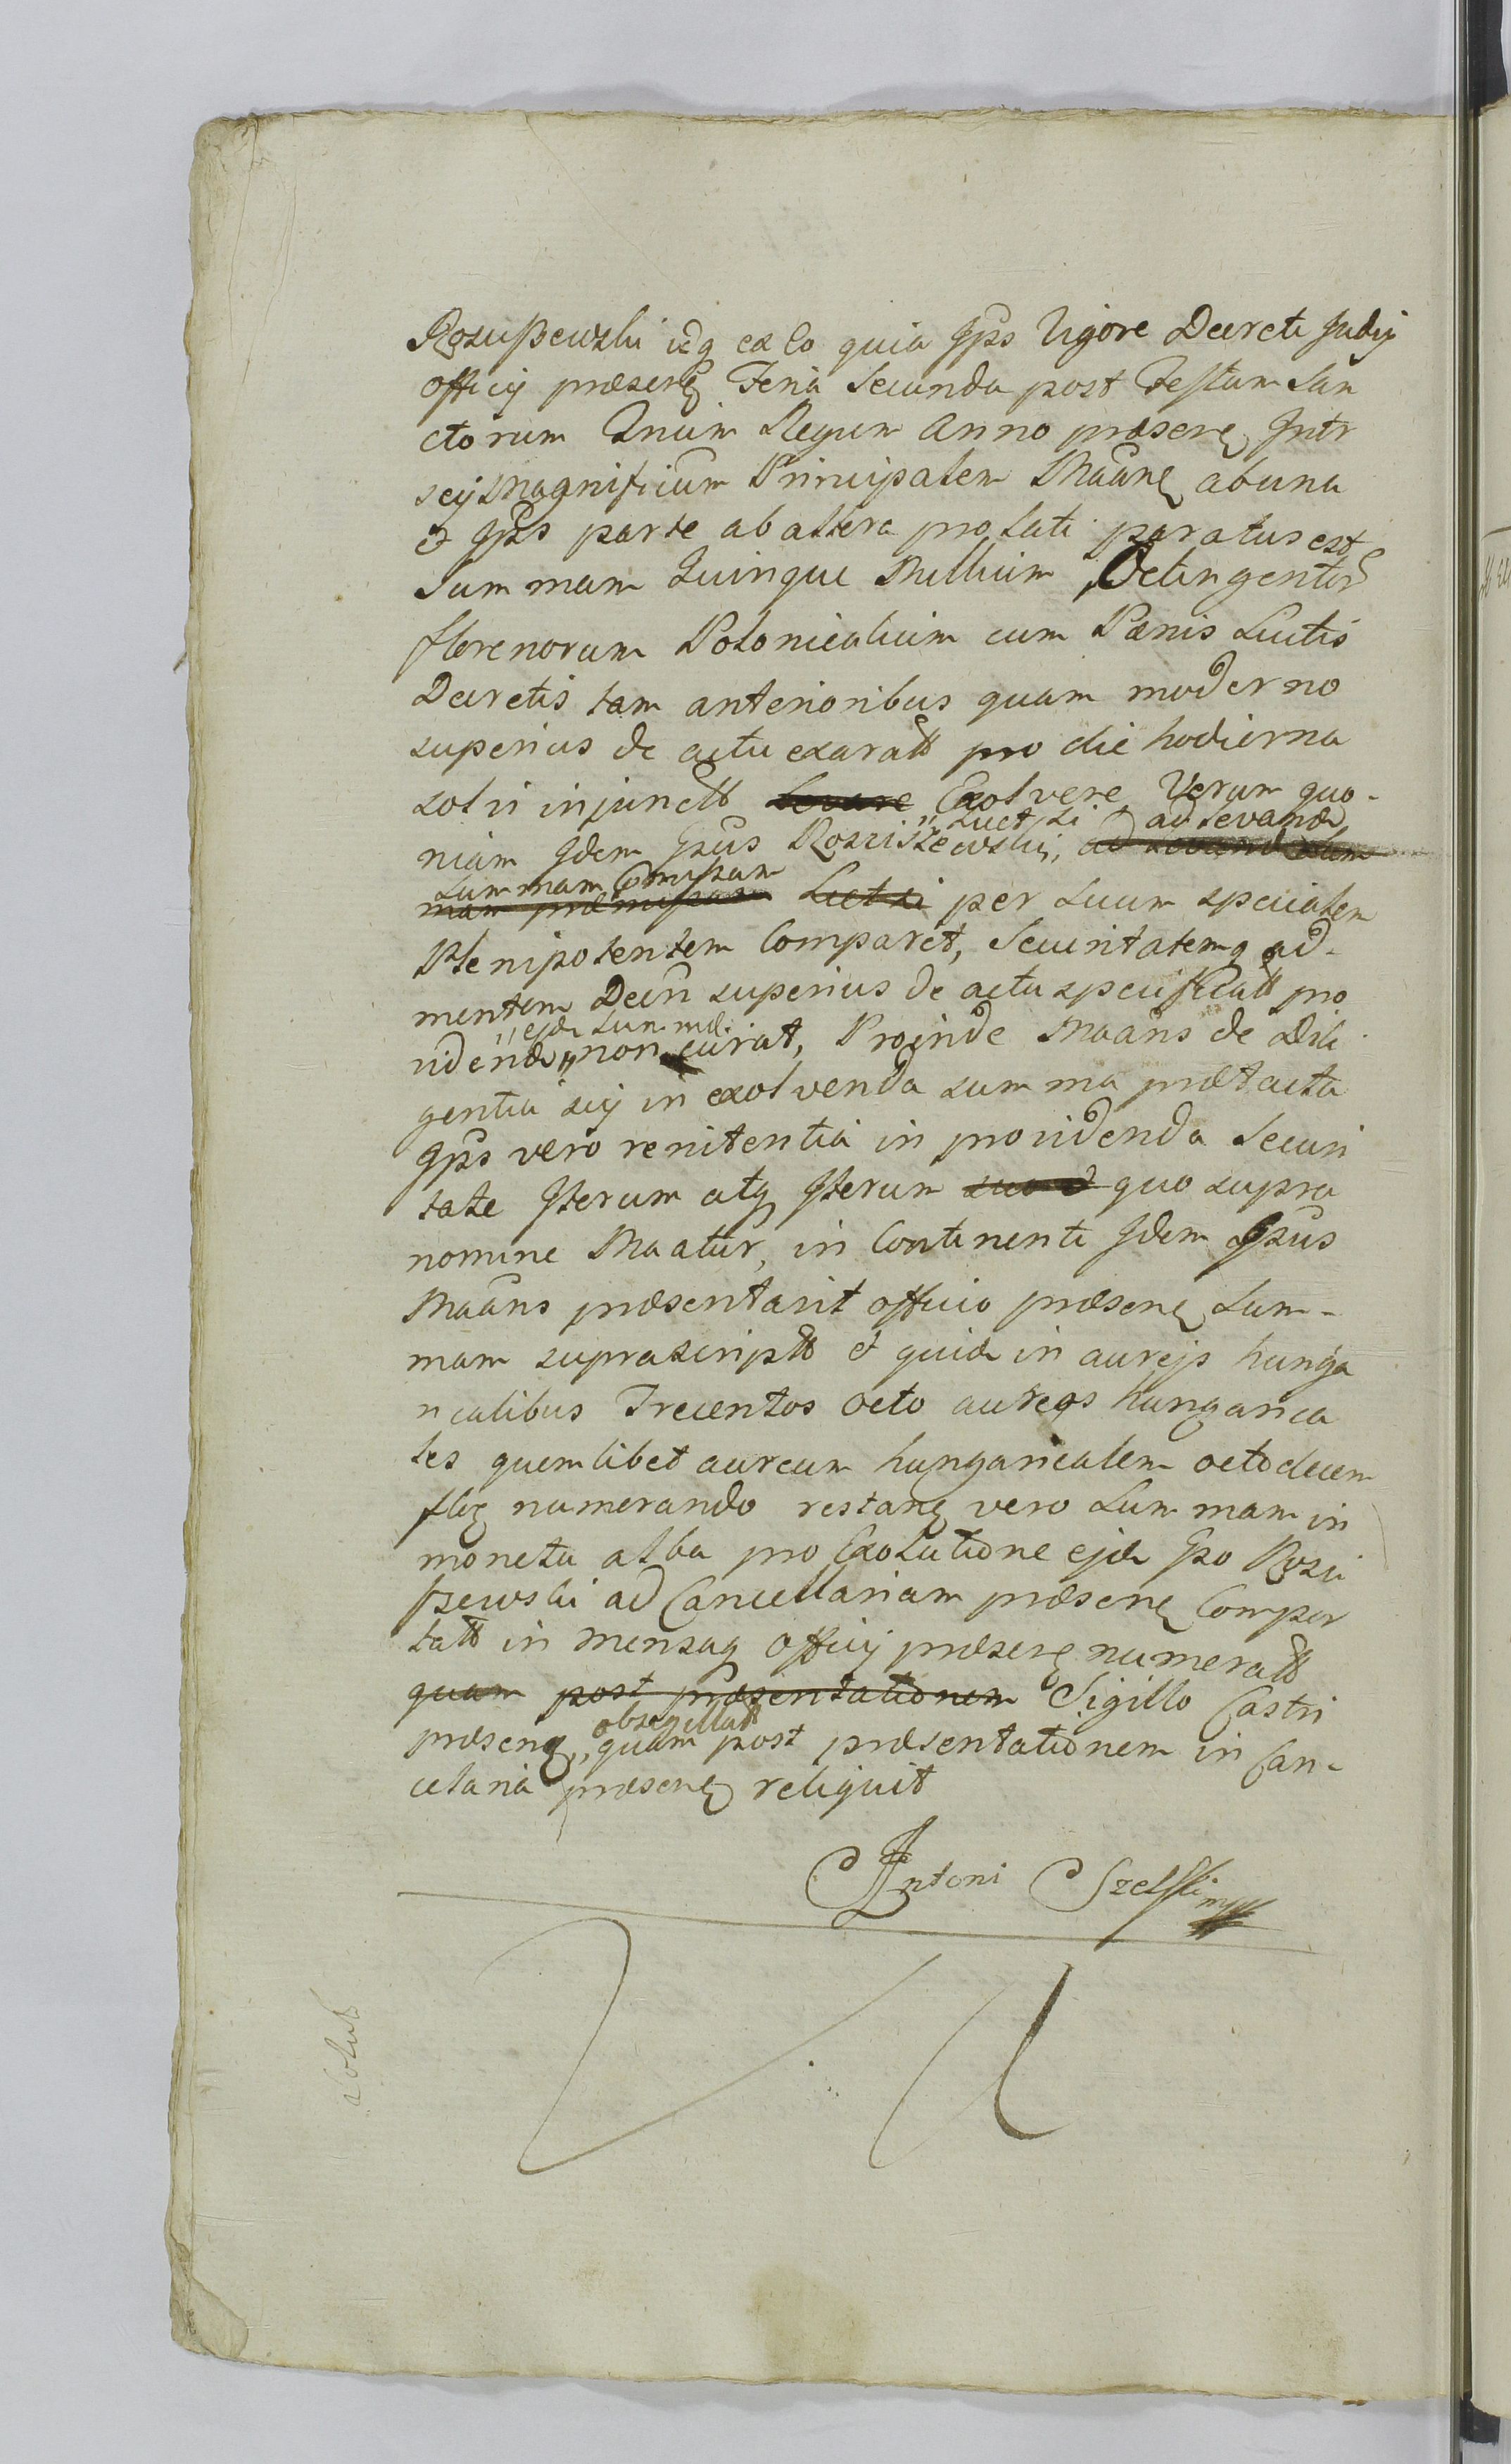 Rozußewski idq ex eo quia Gsps Vigore Decreti Judij
officij præsenę Feria Secunda post Festum San
ctorum Trium Regum Anno præsenę Intr
seij Magnificum Principalem Maanę ab una
et Gsps parte ab altera prolati paratus est
Summam Quinque Millium Octingentor
florenorum Polonicalium cum Pænis Luitis
Decretis tam anterioribus quam moderno
superius de actu exaratt pro die hodierna
solvi injunctt Levare Exolvere Verum quo-
niam Idem Gsus Rosciszewski, Licet si ad levandã
Summam Compsam per suum specialem
Plenipotentem Comparet, Securitatemq ad-
mentem Decri superius de actu specificatt pro
videndã ejdę Summæ non curat, Proinde Maans de Dili
gentia sij in exolvenda summa prætacta
Gsps vero renitentia in providenda Securi
tate Iterum atq Iterum quo supra
nomine Maatur, in Continenti Idem Gsus
Maans præsentavit officio præsenę Sum-
mam suprascriptt et quidę in aurejs hunga
ricalibus Trecentos octo aureos hungarica
les quemlibet aureum hungaricalem octodecem
flę numerando restanę vero Summam in
moneta alba pro Exolutione ejdę Gso Rozci
szewski ad Cancellariam præsenę Compor
tatt in mensaq officij præsenę numeratt
quam post præsentationem Sigillo Castri
præsenę, obsegillatt quam post præsentationem in Can-
celaria præsenę reliquit
Antoni Szelski mp
solut